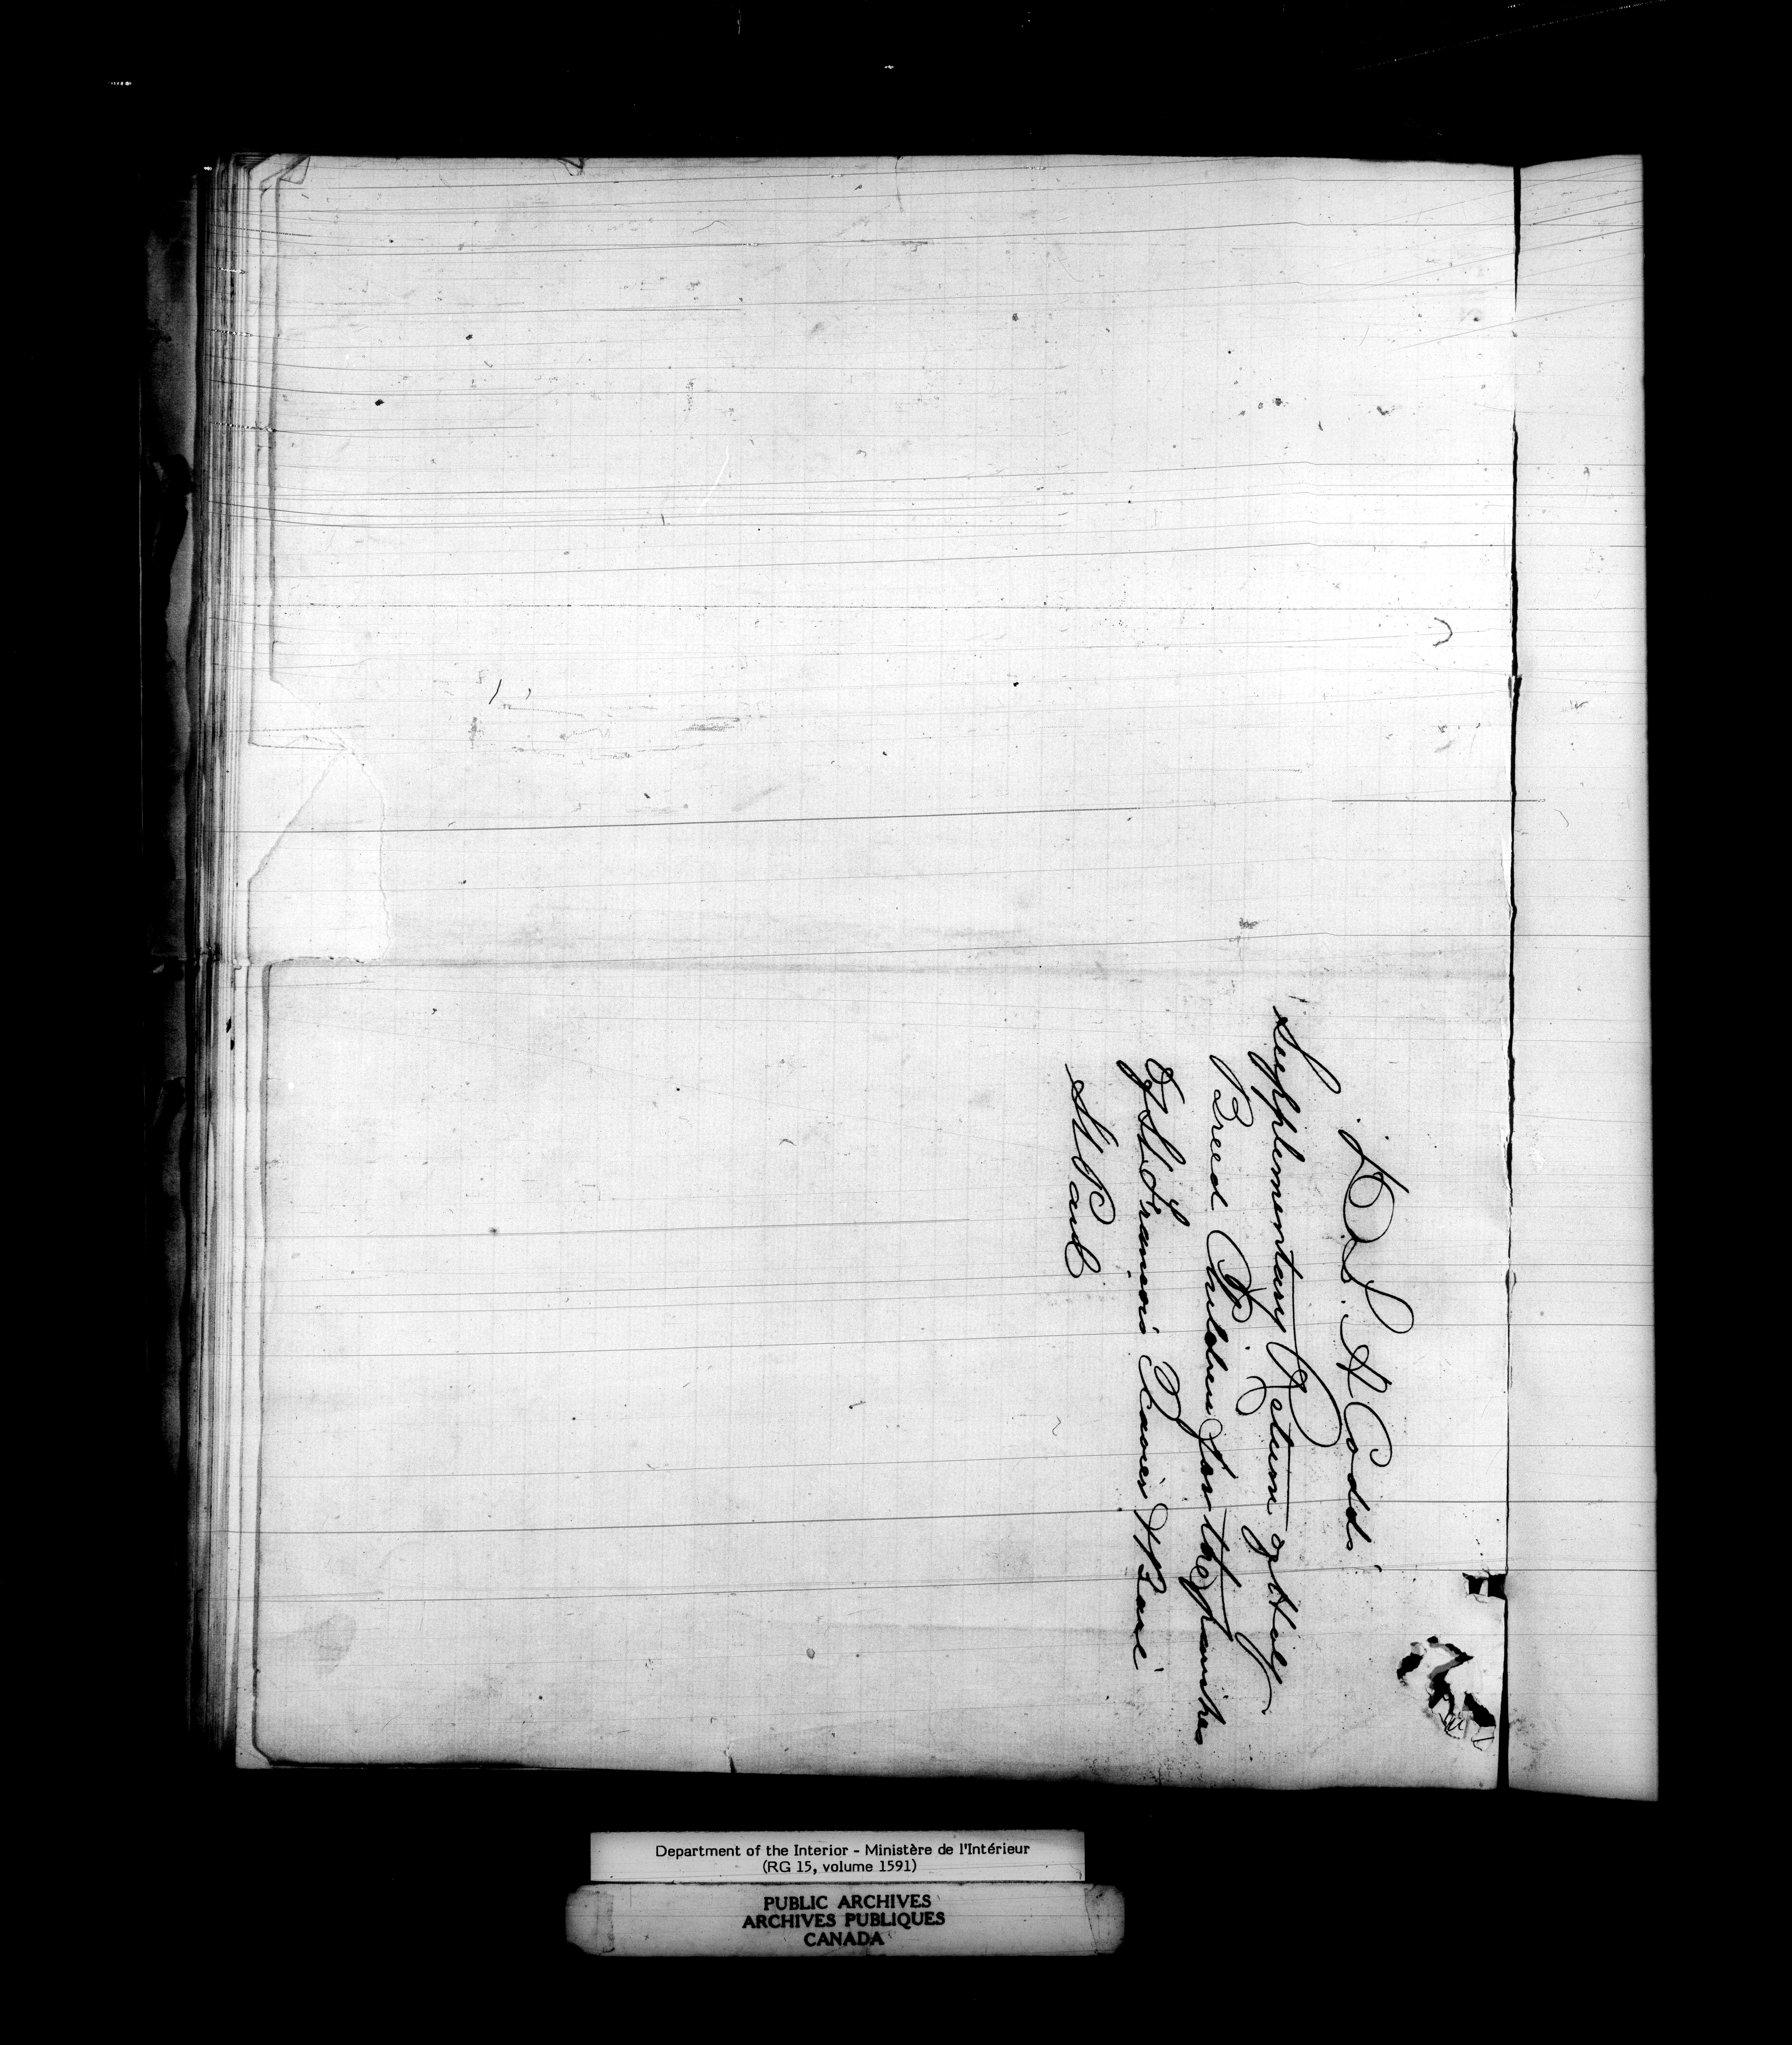 D. S. A Codd
Supplementary Return of Half
Breed Children for the parishes
Of St Francois Xavier & Baie
St Paul
Department of the Interior - Ministère de l'Intérieur
(RG 15, volume 1591)
PUBLIC ARCHIVES
ARCHIVES PUBLIQUES
CANADA